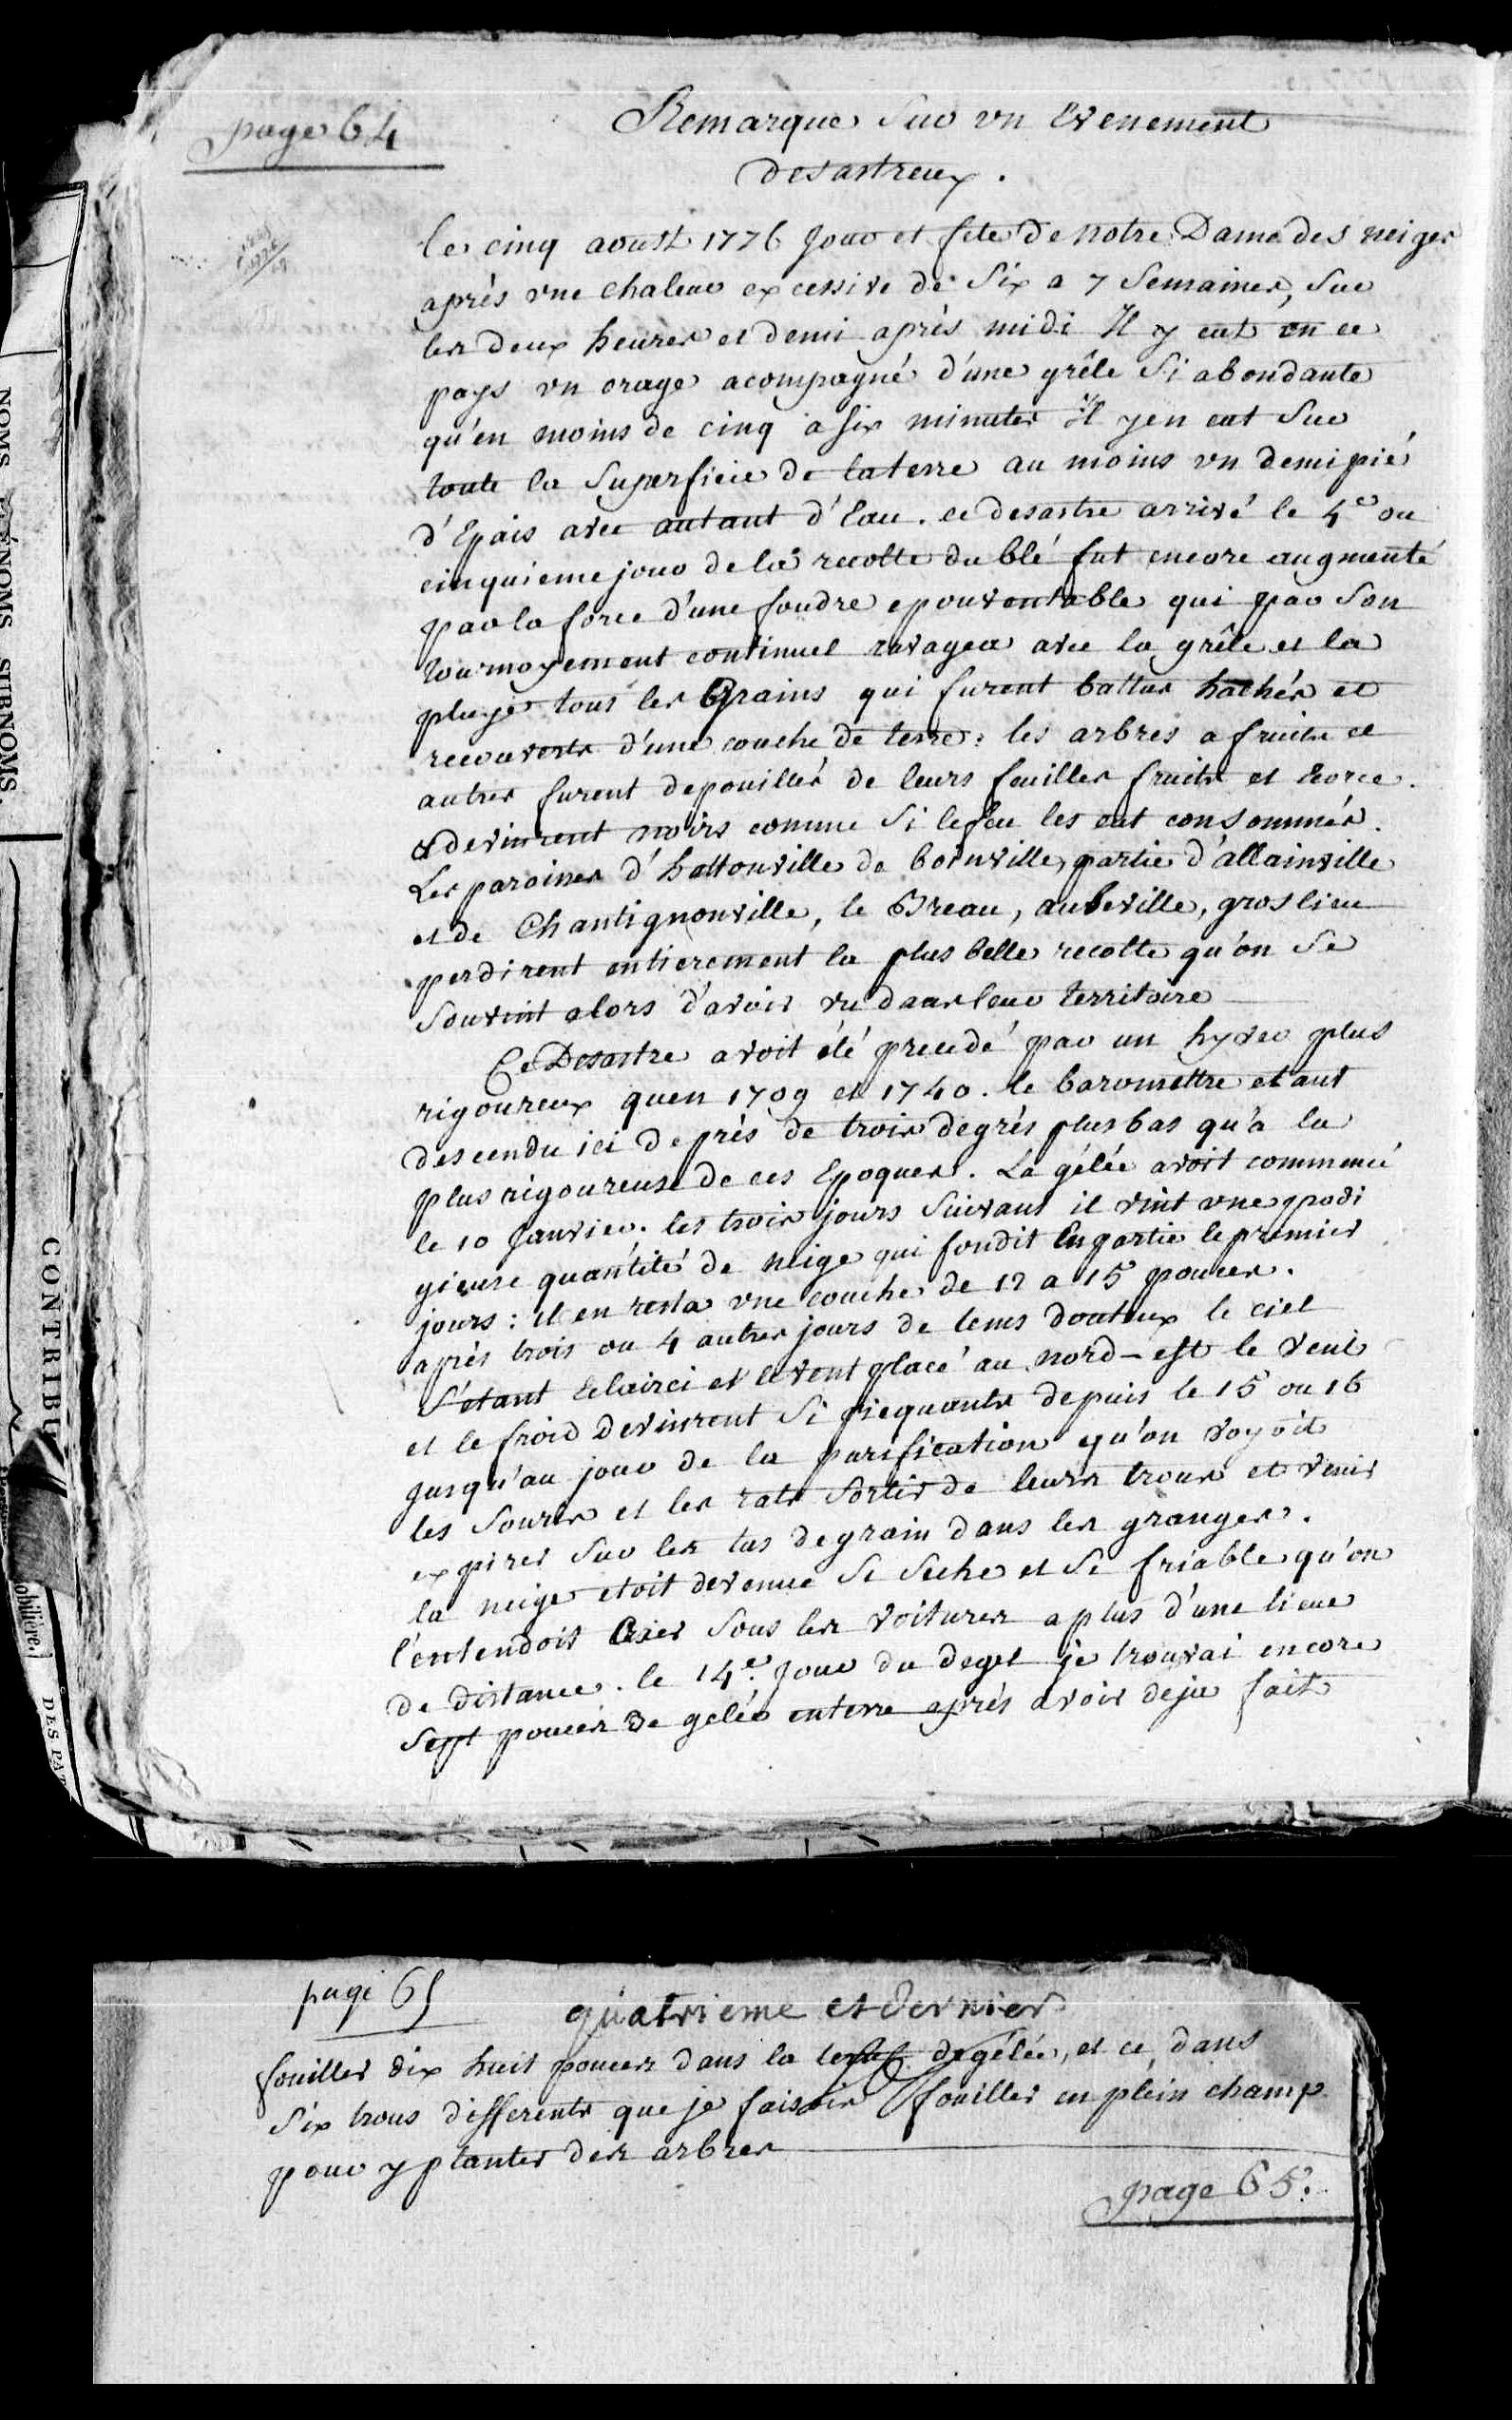 page 64
Remarque Sur vn Evenement
desastreux.
le cinq aoust 1776 Jour et fete de notre Dame des neiges
après vne chaleur excessive de Six a 7 Semaines, Sur
les deux heures et demi après midi Il y eut en ce
pays vn orage acompagné d'une grêle Si abondante
qu'en moins de cinq a six minutes Il y en eut Sur
toute la Superficie de la terre au moins vn demi pié
d'Epais avec autant d'Eau. ce desastre arrivé le 4e ou
cinquieme jour de la recolte du blé fut encore augmenté
par la force d'une foudre epouventable qui par Son
tournoyement continuel ravagea avec la grêle et la
pluye tous les Grains qui furent battus hachés et
recouverts d'une couche de terre: les arbres a fruits et
autres furent depouillés de leurs feuilles fruits et Ecorce.
& devinrent noirs comme Si le feu les eut consommés.
Les paroisses d'hattonville de boinville, partie d'allainville
et de Chantignonville, le Breau, aubeville, groslieu
perdirent entierement la plus belle recolte qu'on Se
Souvint alors d'avoir vu dans leur territoire
Ce Desastre avoit été precedé par un hyver plus
rigoureux quen 1709 et 1740. le baromettre etant
descendu ici de près de trois degrés plus bas qu'à la
plus rigoureuse de ces Epoques. La gélée avoit commencé
le 10 Janvier. les trois jours Suivant il vint vne prodi
gieuse quantité de neige qui fondit En partie le premier
jours: il en resta vne couche de 12 a 15 pouces.
après trois ou 4 autres jours de tems douteux le ciel
S'étant Eclairci et le vent placé au nord-est le vent
et le froid devinrent Si piequants depuis le 15 ou 16
jusqu'au jour de la purification qu'on voyoit
les Souris et les rats Sortir de leurs trous et venir
expirer Sur les tas de grain dans les granges.
la neige etoit devenue Si Seche et Si friable qu'on
l'entendoit Crier Sous les voitures a plus d'une lieue
de distance. le 14e. Jour du degel je trouvai encore
Sept pouces de gelée enterre après avoir deja fait
page 65
quatrieme et dernier
fouiller dix huit pouces dans la degélée, et ce dans
Six trous differents que je faisois fouiller en plein champ
pour y planter des arbres
page 65.
NOMS PRÉNOMS SURNOMS.
CONTRIBU
obilière.
DES PAT